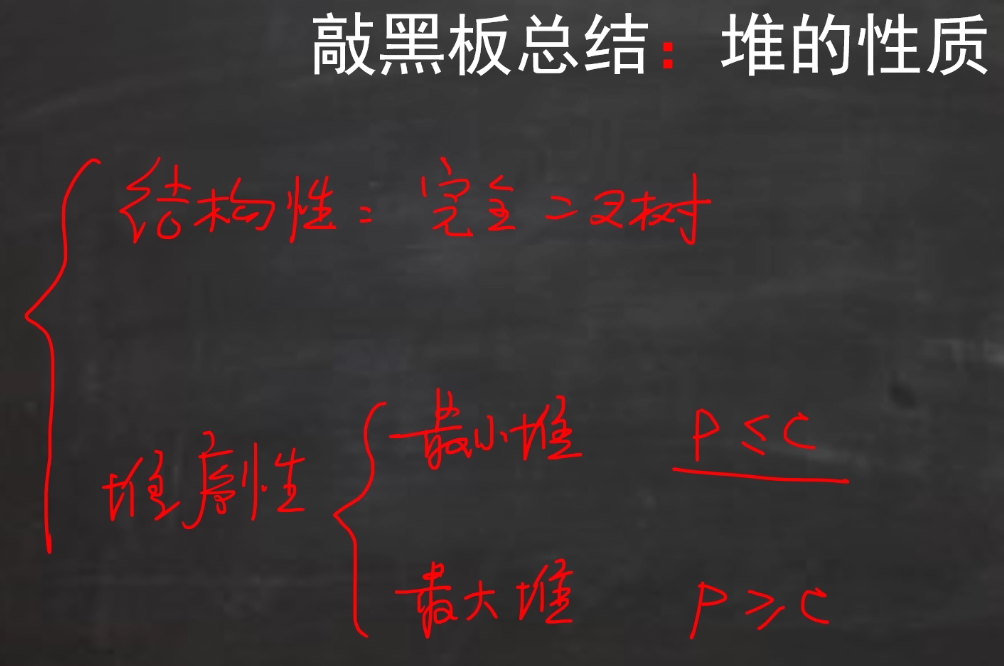 敲黑板总结：堆的性质
结构性：完全二叉树
堆序性
最小堆 P≤C
最大堆 P≥C